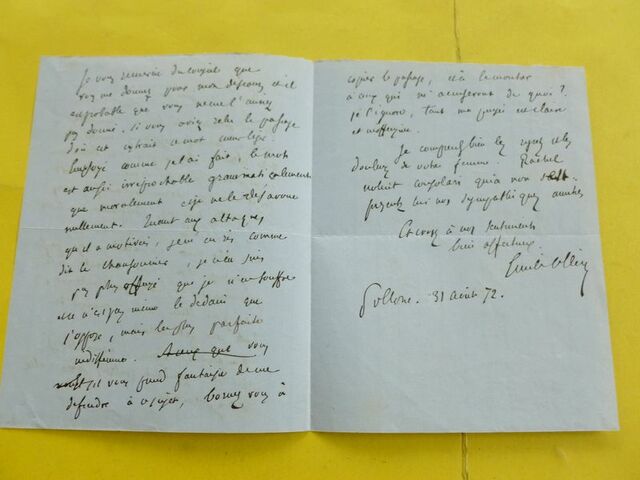 Je vous remercie du conseil que
vous me donnez pour mon discours et il
est probable que vous ne me l'auriez
pas donné. Si vous aviez relu le passage
d'où est extrait ce mot cœur léger.
Employé comme je l'ai fait, le mot
est aussi irréprochable grammaticalement
que moralement et je ne le désavoue
nullement. Quant aux attaques
qu'il a motivées, j'en ris comme
dit le chansonnier, je n'en suis
pas plus affligé que je n'en souffre
ce n'est pas même le dédain que
j'oppose, mais la plus parfaite
indifférence. vous
s'il vous prend fantaisie de me
défendre à ce sujet, bornez vous à
copier le passage, et à le montrer
à ceux qui m'accuseront de quoi ?
je l'ignore, tant ma pensée est claire
et inoffensive.
Je comprends bien les et la
douleur de votre femme. Rachel
noluit consolari quia non sunt.
présentez lui nos sympathiques amitiés
Et croyez à nos sentiments
bien affectueux.
Emile Ollivier
Pollone. 31 août 72.